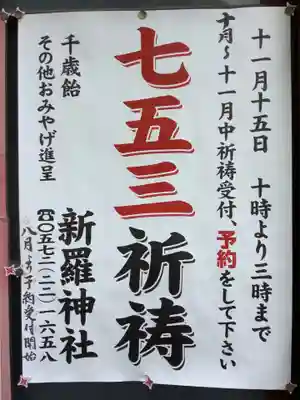 十一月十五日 十時より三時まで
十月～十一月中祈祷受付、予約をして下さい
七五三祈祷
千歳飴
その他おみやげ進呈
新羅神社
☎〇五七二(二二)一六五八
八月より予約受付開始